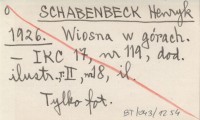 o SCHABENBECK Henryk
1926. Wiosna w górach.
– IKC 17, nr 119, dod.
ilustr. F II, nr 18, il.
Tylko fot.
BT/043/1254